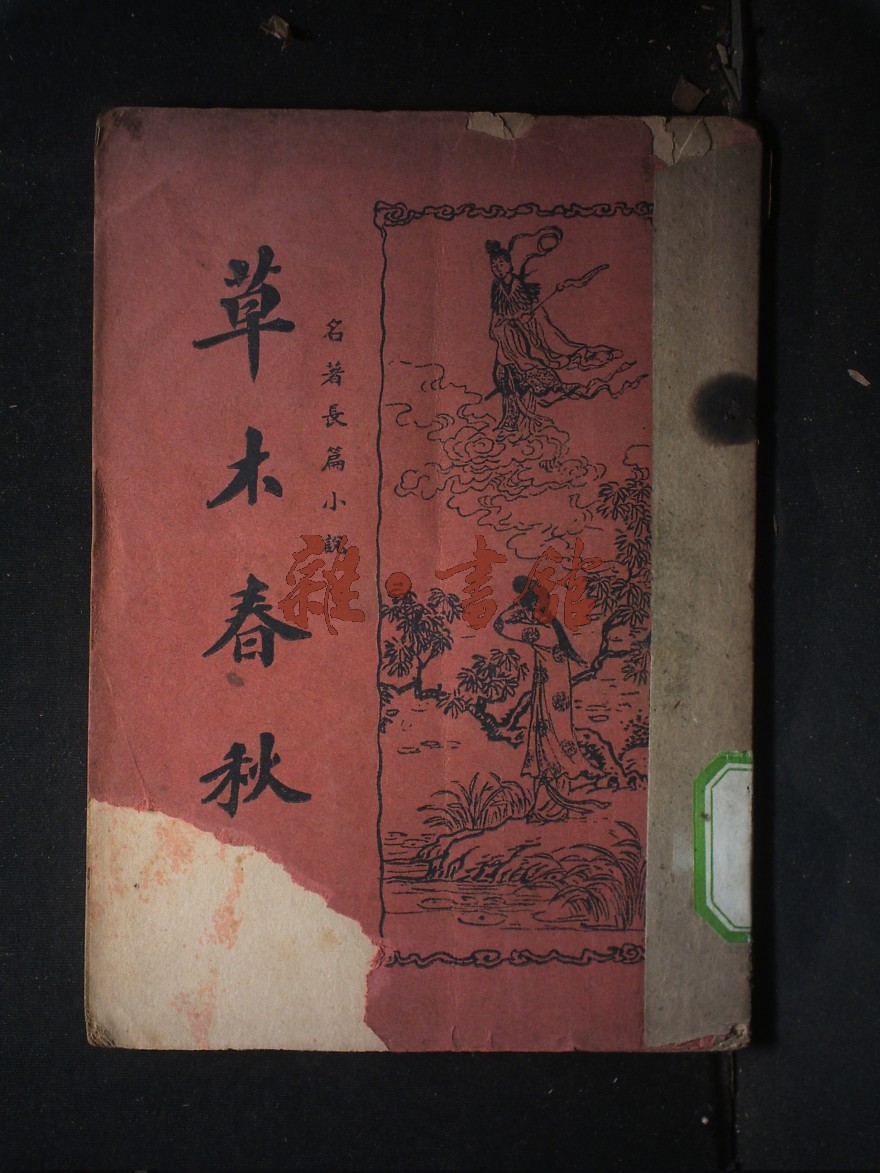 名著長篇小說
草木春秋
雜·書館